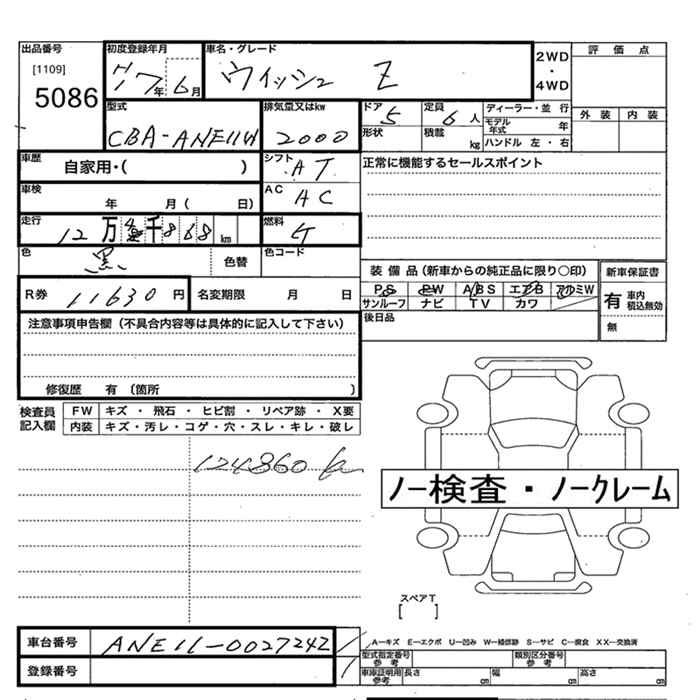 出品番号 初度登録年月 車名・グレード 2WD・4WD 評価点
[1109] 5086 H17年6月 ウィッシュ Z
外装 内装
型式 排気量又はkw ドア 定員 ディーラー・並行
CBA-ANE11W 2000 5 6人 モデル年式 年
形状 積載 kg ハンドル 左・右
車歴 自家用・( ) シフト AT 正常に機能するセールスポイント
車検 年 月( 日) AC AC
走行 12万4千868km 燃料 ガ
色 黒 色替 色コード
装備品(新車からの純正品に限り○印) 新車保証書
PS PW A/BS エアB アルミW 有 車内 積込無効
サンルーフ ナビ TV カワ 無
R券 11630円 名変期限 月 日
後日品
注意事項申告欄(不具合内容等は具体的に記入して下さい)
修復歴 有 〔箇所 〕
検査員記入欄 FW キズ・飛石・ヒビ割・リペア跡・X要
内装 キズ・汚レ・コゲ・穴・スレ・キレ・破レ
124860 km
ノー検査・ノークレーム
スペアT
[ ]
車台番号 ANE11-0027242
A―キズ E―エクボ U―凹み W―補修跡 S―サビ C―腐食 XX―交換済
型式指定番号 参考 類別区分番号 参考
登録番号
車庫証明用 参考 長さ cm 幅 cm 高さ cm